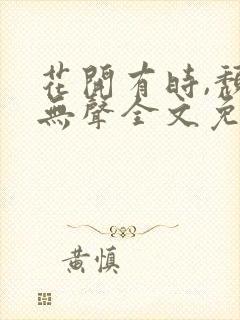 花開有時,頹
無聲全文免
黃慎